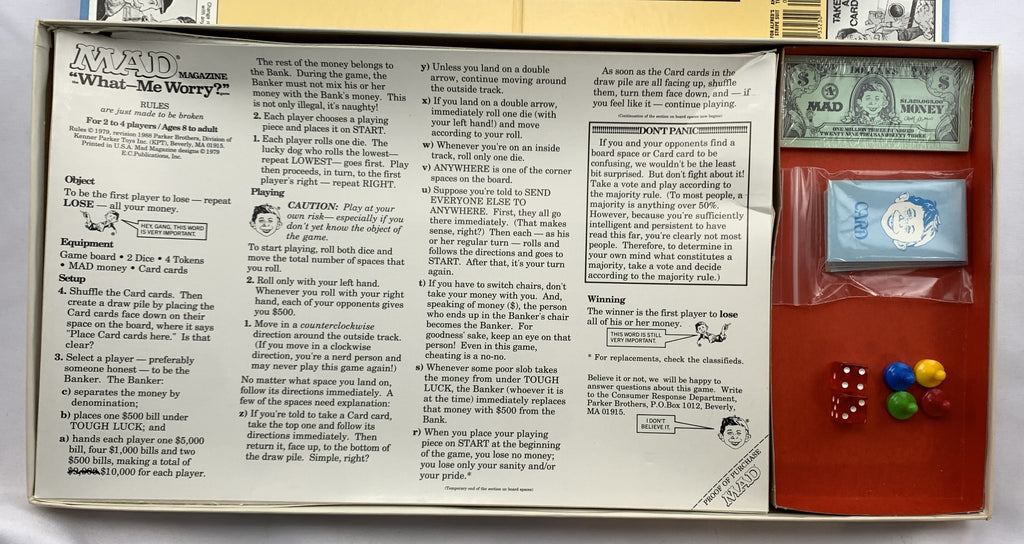 MAD
MAGAZINE
"What—Me Worry?"
RULES
are just made to be broken
For 2 to 4 players / Ages 8 to adult
Rules © 1979, revision 1988 Parker Brothers, Division of
Kenner Parker Toys Inc. (KPT), Beverly, MA 01915.
Printed in U.S.A. Mad Magazine designs © 1979
E.C. Publications, Inc.
Object
To be the first player to lose — repeat
LOSE — all your money.
HEY, GANG, THIS WORD
IS VERY IMPORTANT.
Equipment
Game board • 2 Dice • 4 Tokens
• MAD money • Card cards
Setup
4. Shuffle the Card cards. Then
create a draw pile by placing the
Card cards face down on their
space on the board, where it says
"Place Card cards here." Is that
clear?
3. Select a player — preferably
someone honest — to be the
Banker. The Banker:
c) separates the money by
denomination;
b) places one $500 bill under
TOUGH LUCK; and
a) hands each player one $5,000
bill, four $1,000 bills and two
$500 bills, making a total of
$10,000 for each player.
The rest of the money belongs to
the Bank. During the game, the
banker must not mix his or her
money with the Bank's money. This
is not only illegal, it's naughty!
2. Each player chooses a playing
piece and places it on START.
1. Each player rolls one die. The
lucky dog who rolls the lowest—
repeat LOWEST— goes first. Play
then proceeds, in turn, to the first
player's right — repeat RIGHT.
Playing
CAUTION: Play at your
own risk— especially if you
don't yet know the object of
the game.
To start playing, roll both dice and
move the total number of spaces that
you roll.
2. Roll only with your left hand.
Whenever you roll with your right
hand, each of your opponents gives
you $500.
1. Move in a counterclockwise
direction around the outside track.
(If you move in a clockwise
direction, you're a nerd person and
may never play this game again!)
No matter what space you land on,
follow its directions immediately. A
few of the spaces need explanation:
z) If you're told to take a Card card,
take the top one and follow its
directions immediately. Then
return it, face up, to the bottom of
the draw pile. Simple, right?
y) Unless you land on a double
arrow, continue moving around
the outside track.
x) If you land on a double arrow,
immediately roll one die (with
your left hand!) and move
according to your roll.
w) Whenever you're on an inside
track, roll only one die.
v) ANYWHERE is one of the corner
spaces on the board.
u) Suppose you're told to SEND
EVERYONE ELSE TO
ANYWHERE. First, they all go
there immediately. (That makes
sense, right?) Then each — as his
or her regular turn — rolls and
follows the directions and goes to
START. After that, it's your turn
again.
t) If you have to switch chairs, don't
take your money with you. And,
speaking of money ($), the person
who ends up in the Banker's chair
becomes the Banker. For
goodness' sake, keep an eye on that
person! Even in this game,
cheating is a no-no.
s) Whenever some poor slob takes
the money from under TOUGH
LUCK, the Banker (whoever it is
at the time) immediately replaces
that money with $500 from the
Bank.
r) When you place your playing
piece on START at the beginning
of the game, you lose no money;
you lose only your sanity and/or
your pride.*
(Temporary end of the section on board spaces)
As soon as the Card cards in the
draw pile are all facing up, shuffle
them, turn them face down, and — if
you feel like it — continue playing.
(Continuation of the section on board spaces begins now)
DON'T PANIC
If you and your opponents find a
board space or Card card to be
confusing, we wouldn't be the least
bit surprised. But don't fight about it!
Take a vote and play according to
the majority rule. (To most people, a
majority is anything over 50%.
However, because you're sufficiently
intelligent and persistent to have
read this far, you're clearly not most
people. Therefore, to determine in
your own mind what constitutes a
majority, take a vote and decide
according to the majority rule.)
Winning
The winner is the first player to lose
all of his or her money.
THIS WORD IS STILL
VERY IMPORTANT.
* For replacements, check the classifieds.
Believe it or not, we will be happy to
answer questions about this game. Write
to the Consumer Response Department,
Parker Brothers, P.O. Box 1012, Beverly,
MA 01915.
I DON'T
BELIEVE IT.
PROOF OF PURCHASE
MAD
DOLLARS
A
MAD
$1,329,063.00
MONEY
CARD
TAKE
A
CARD